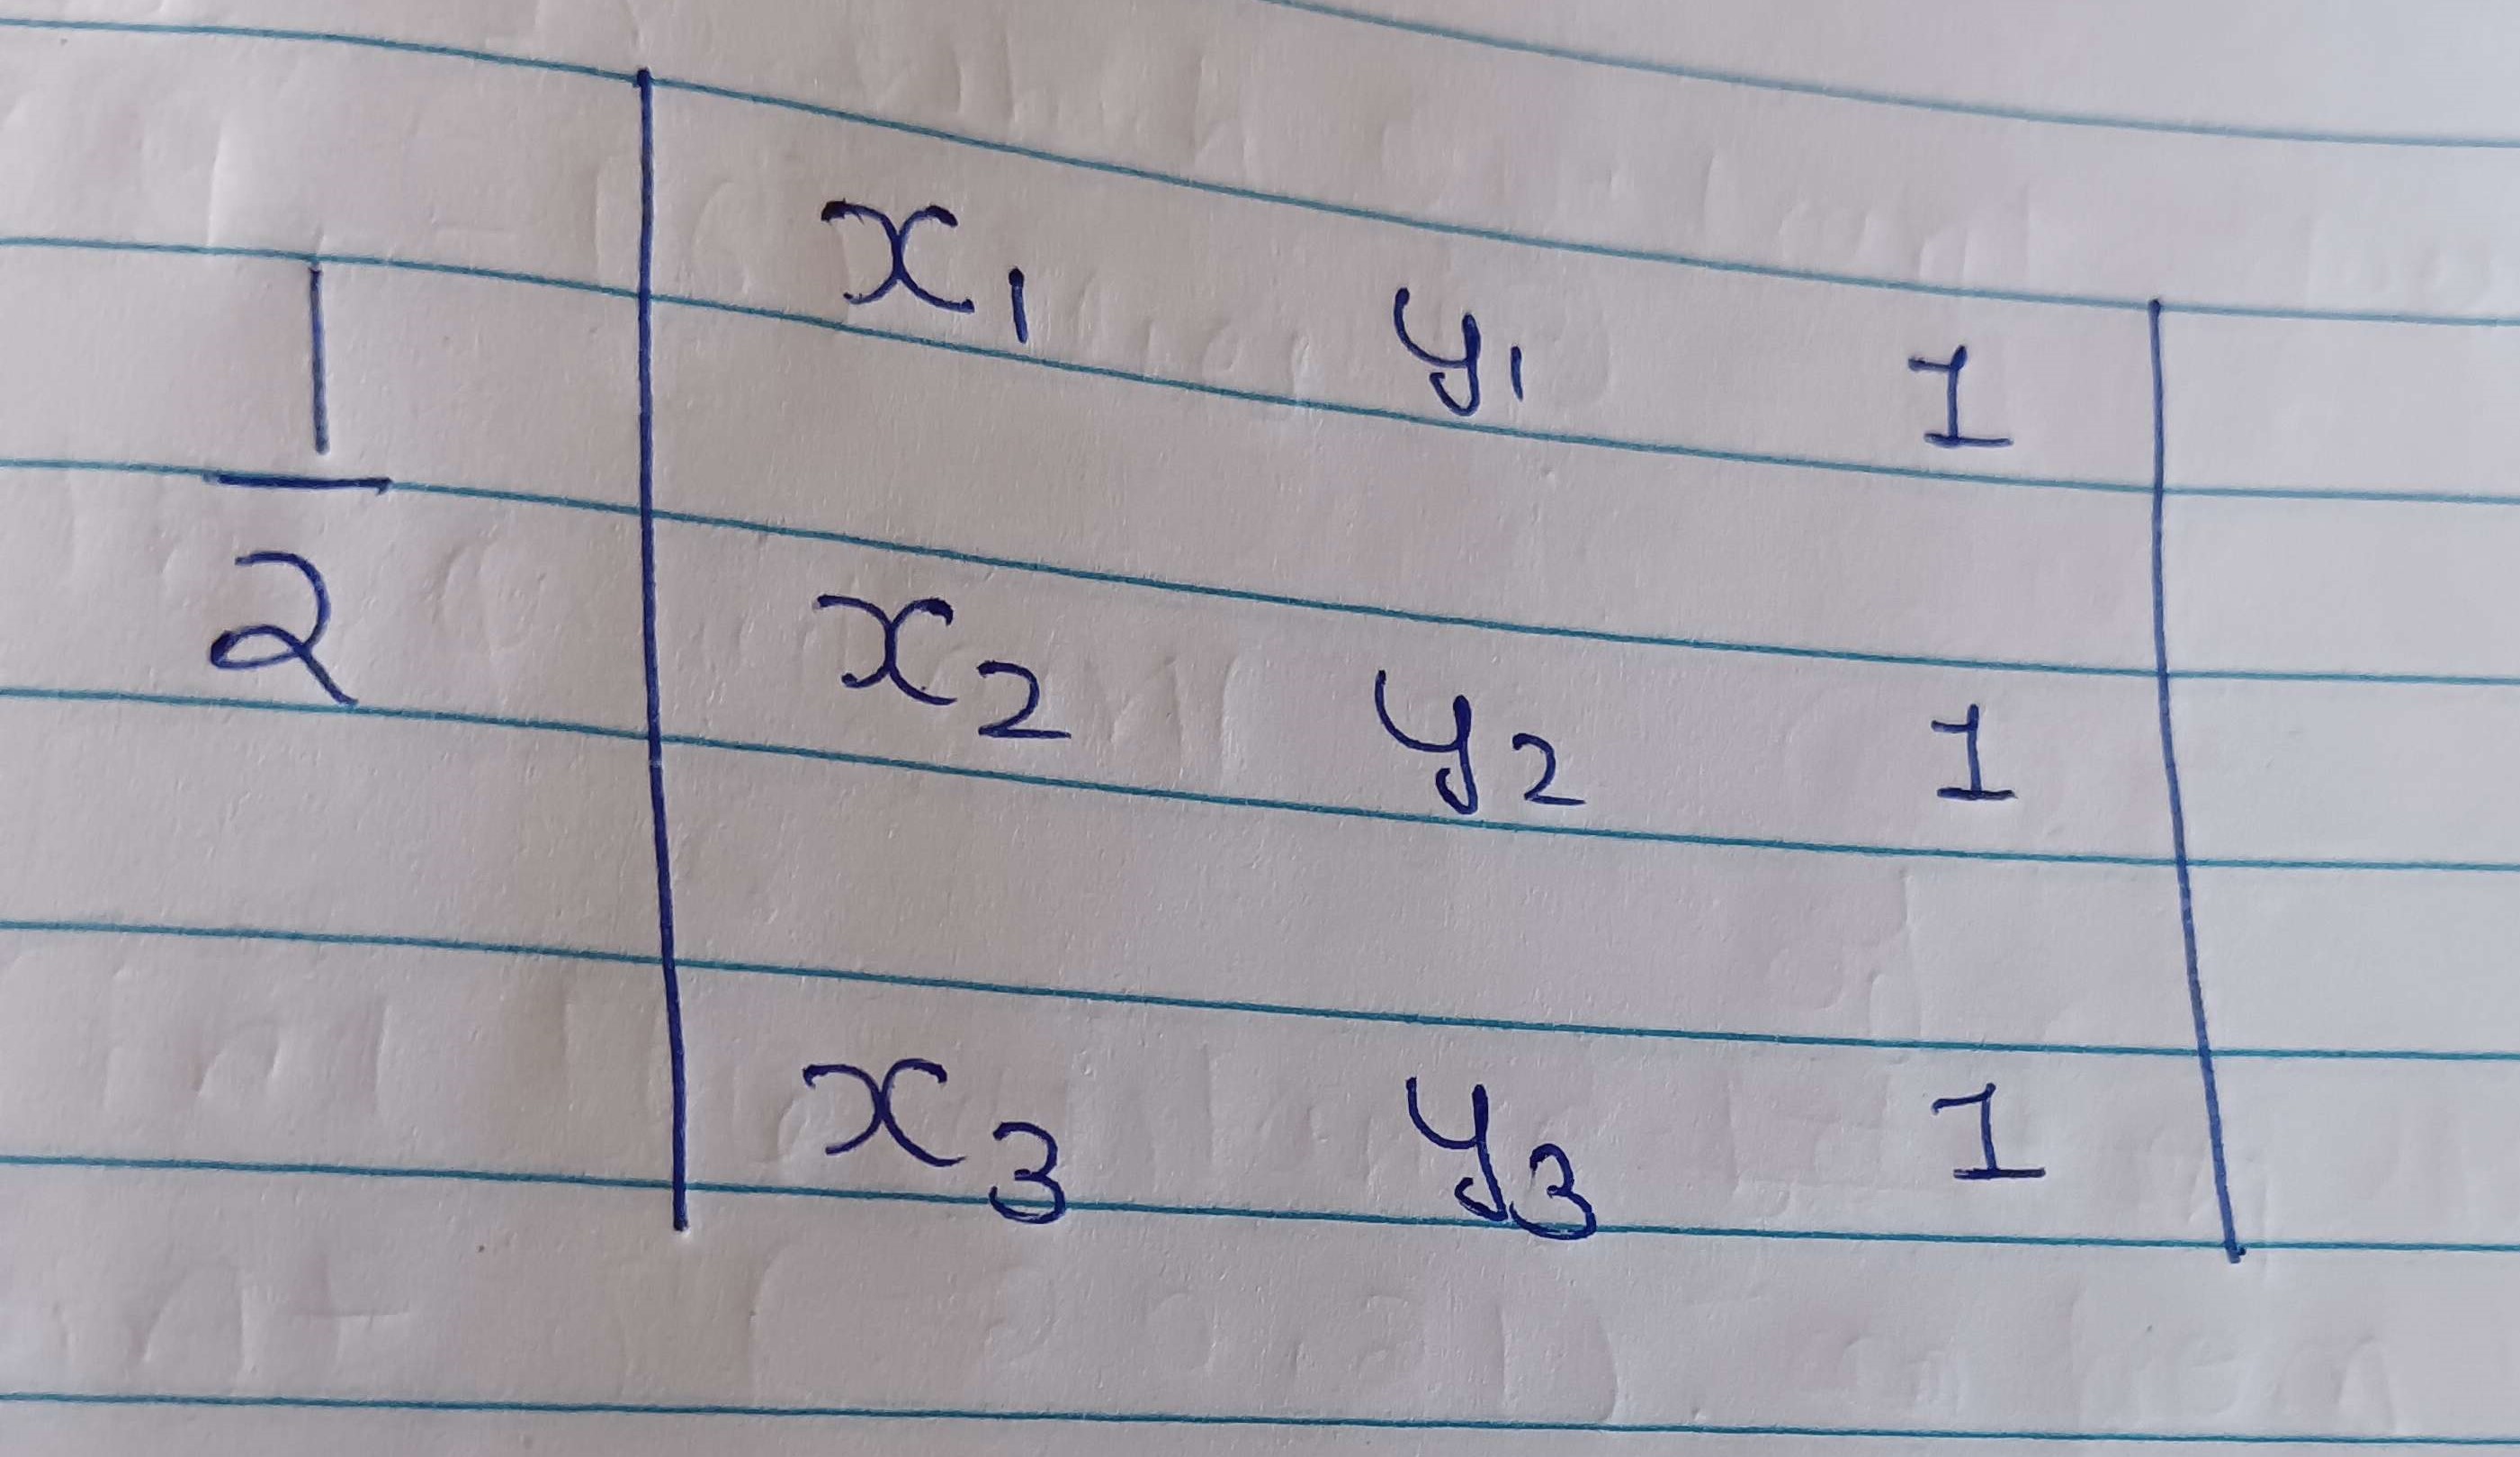 1/2 | x₁ y₁ 1 |
| x₂ y₂ 1 |
| x₃ y₃ 1 |